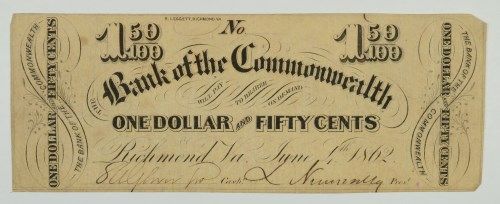 R. LEGGETT, RICHMOND, VA
1 50/100 No. 1 50/100
THE Bank of the Commonwealth
WILL PAY TO BEARER ON DEMAND
ONE DOLLAR AND FIFTY CENTS
Richmond Va. June 1862
Cash. Pres.
ONE DOLLAR AND FIFTY CENTS
THE BANK OF THE COMMONWEALTH
THE BANK OF THE COMMONWEALTH
ONE DOLLAR AND FIFTY CENTS